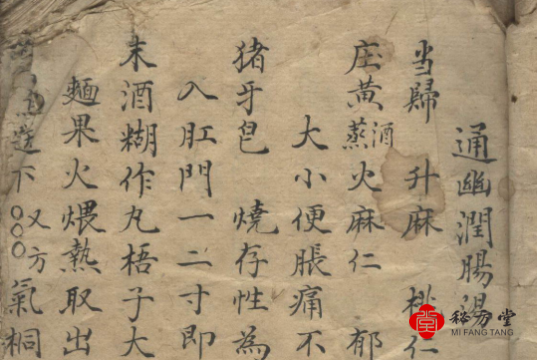 通幽潤腸湯
当歸 升麻 桃仁
庄黄酒蒸 火麻仁 郁
大小便脹痛不
猪牙皂 燒存性為
入肛門一二寸即
末酒糊作丸梧子大
麵果火煨熱取出
送下○○○又方 氣桐
秘方堂
MI FANG TANG